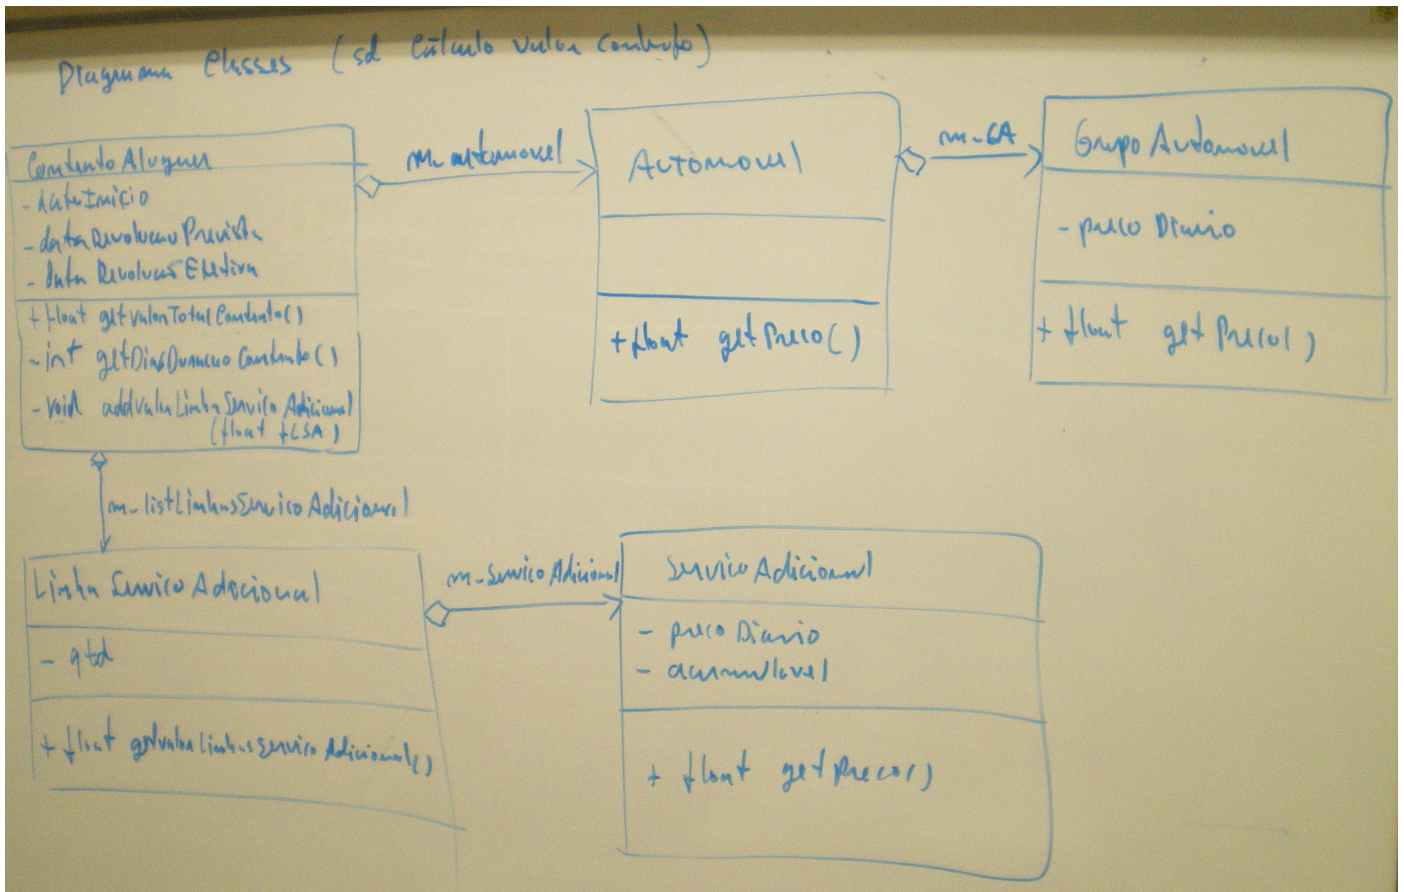 Diagrama Classes (sd Cálculo Valor Contrato)
ContratoAluguer
- dataInicio
- dataDevolucaoPrevista
- dataDevolucaoEfetiva
+ float getValorTotalContrato()
- int getDiasDuracaoContrato()
- void addValorLinhaServicoAdicional
(float fLSA)
m_automovel
Automovel
+ float getPreco()
m_GA
GrupoAutomovel
- precoDiario
+ float getPreco()
m_listLinhasServicoAdicional
LinhaServicoAdicional
- qtd
+ float getValorLinhasServicoAdicional()
m_ServicoAdicional
ServicoAdicional
- precoDiario
- acumulavel
+ float getPreco()